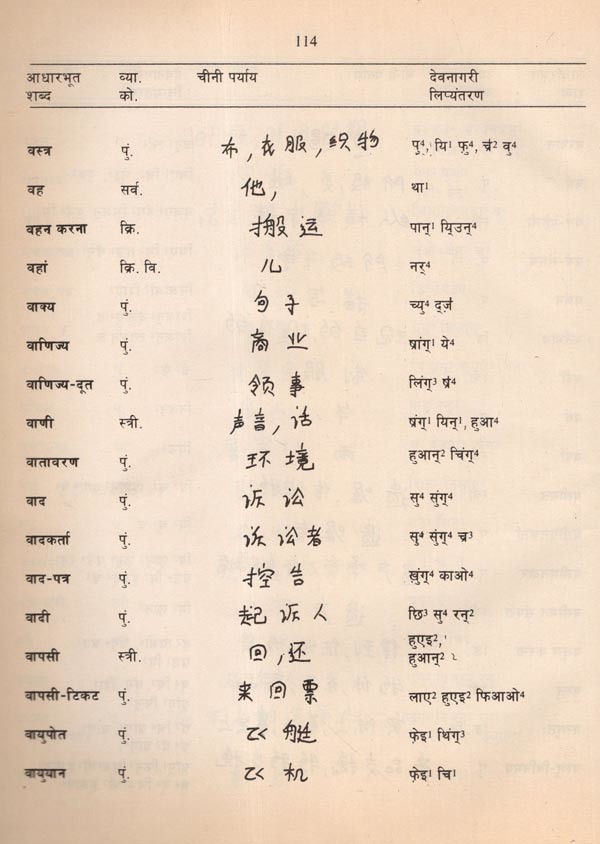 114
आधारभूत शब्द व्या. को. चीनी पर्याय देवनागरी लिप्यंतरण
वस्त्र पुं. 布,衣服,织物 पु⁴, यि¹ फु⁴, च्रं² वु⁴
वह सर्व. 他, था¹
वहन करना क्रि. 搬运 पान्¹ यि॒उन्⁴
वहां क्रि. वि. 儿 नर्⁴
वाक्य पुं. 句子 च्यु⁴ द्ज़
वाणिज्य पुं. 商业 ष्रांग्¹ ये⁴
वाणिज्य-दूत पुं. 领事 लिंग्³ ष्रं⁴
वाणी स्त्री. 声音,话 ष्रंग्¹ यिन्¹, हुआ⁴
वातावरण पुं. 环境 हुआन्² चिंग्⁴
वाद पुं. 诉讼 सु⁴ सुंग्⁴
वादकर्ता पुं. 诉讼者 सु⁴ सुंग्⁴ च्र³
वाद-पत्र पुं. 控告 खुंग्⁴ काओ⁴
वादी पुं. 起诉人 छि³ सु⁴ रन्²
वापसी स्त्री. 回,还 हुएइ², हुआन्²
वापसी-टिकट पुं. 来回票 लाए² हुएइ² फिआओ⁴
वायुपोत पुं. 飞艇 फ़ेइ¹ थिंग्³
वायुयान पुं. 飞机 फ़ेइ¹ चि¹